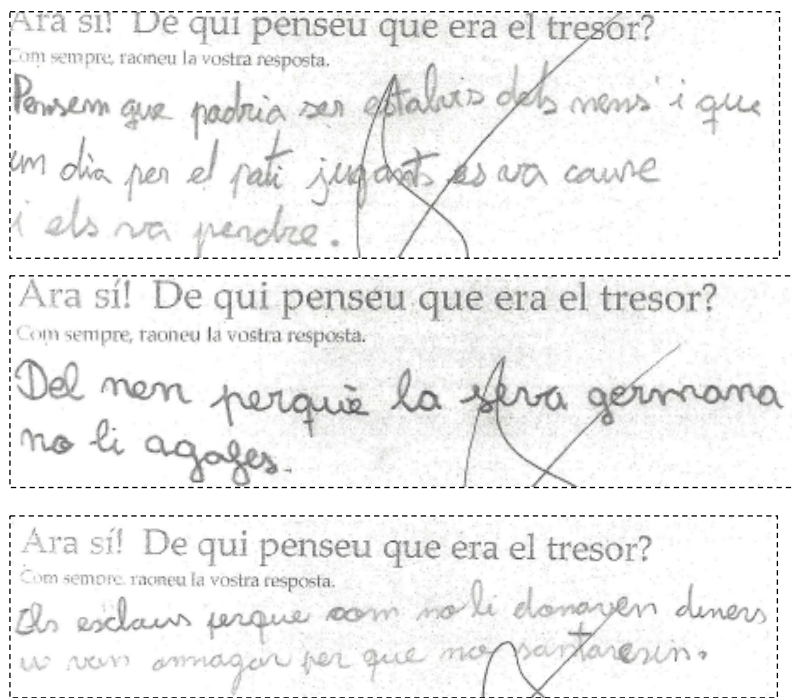 Ara sí! De qui penseu que era el tresor?
Com sempre, raoneu la vostra resposta.
Pensem que podria ser estalvis dels nens i que
un dia per el pati jugants es va caure
i els va perdre.
Ara sí! De qui penseu que era el tresor?
Com sempre, raoneu la vostra resposta.
Del nen perquè la seva germana
no li agafes.
Ara sí! De qui penseu que era el tresor?
Com sempre, raoneu la vostra resposta.
Els esclaus perque com no li donaven diners
u van amagar per que no santaresin.